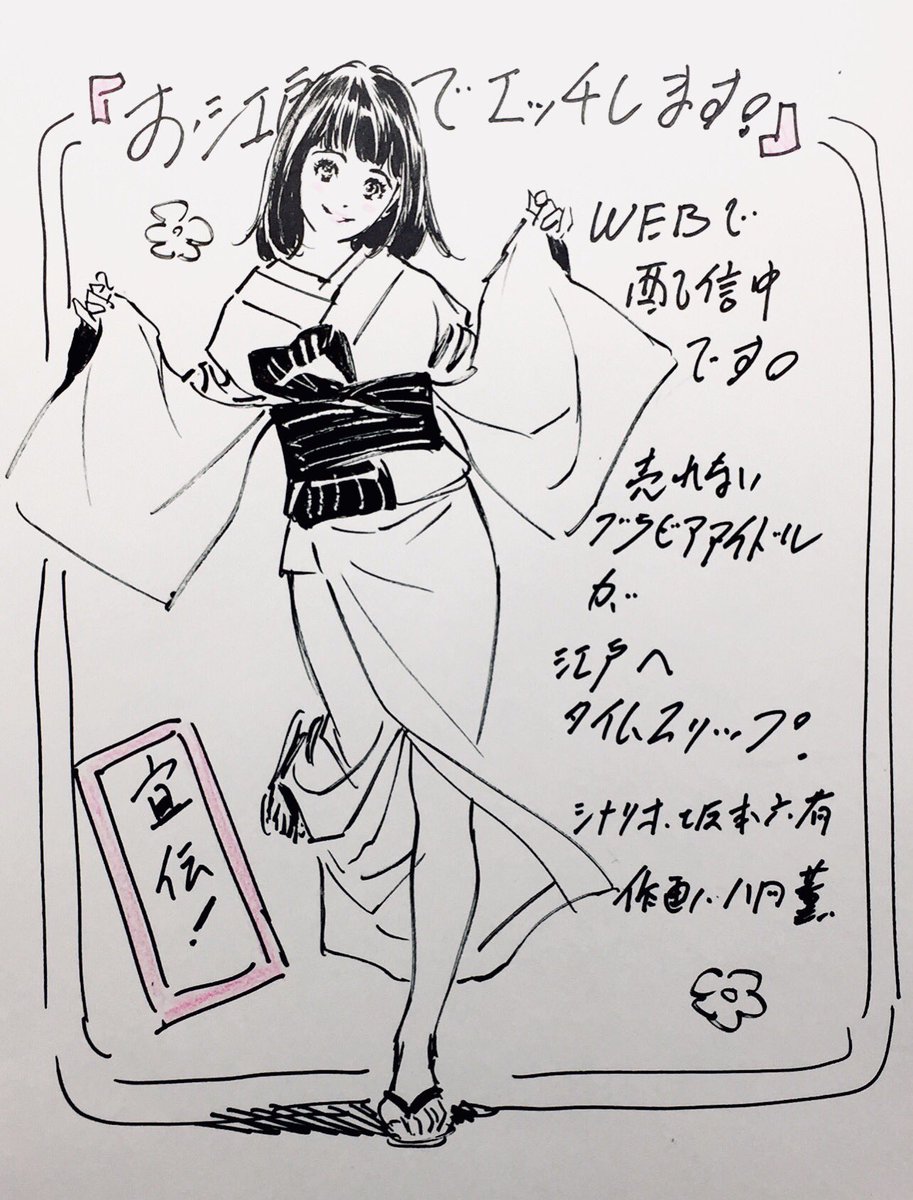 『お江戸でエッチします!』
WEBで
配信中
です。
売れない
グラビアアイドル
が
江戸へ
タイムスリップ!
シナリオ・坂本六有
作画・八月薫
宣伝!